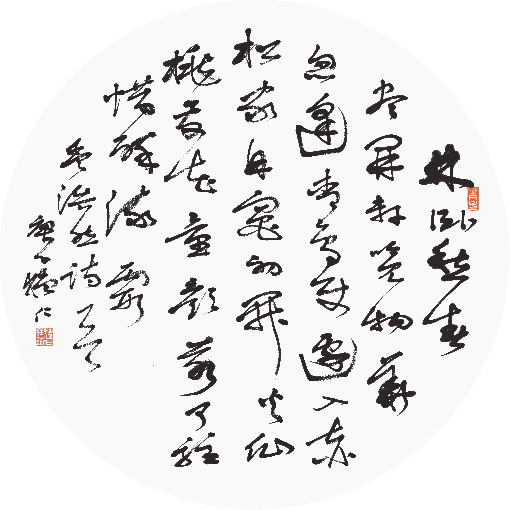 林卧愁春
尽开轩览物华
忽逢青鸟使邀入赤
松家丹灶初开火仙
桃花童颜若可驻
惜醉流霞
孟浩然诗
仁